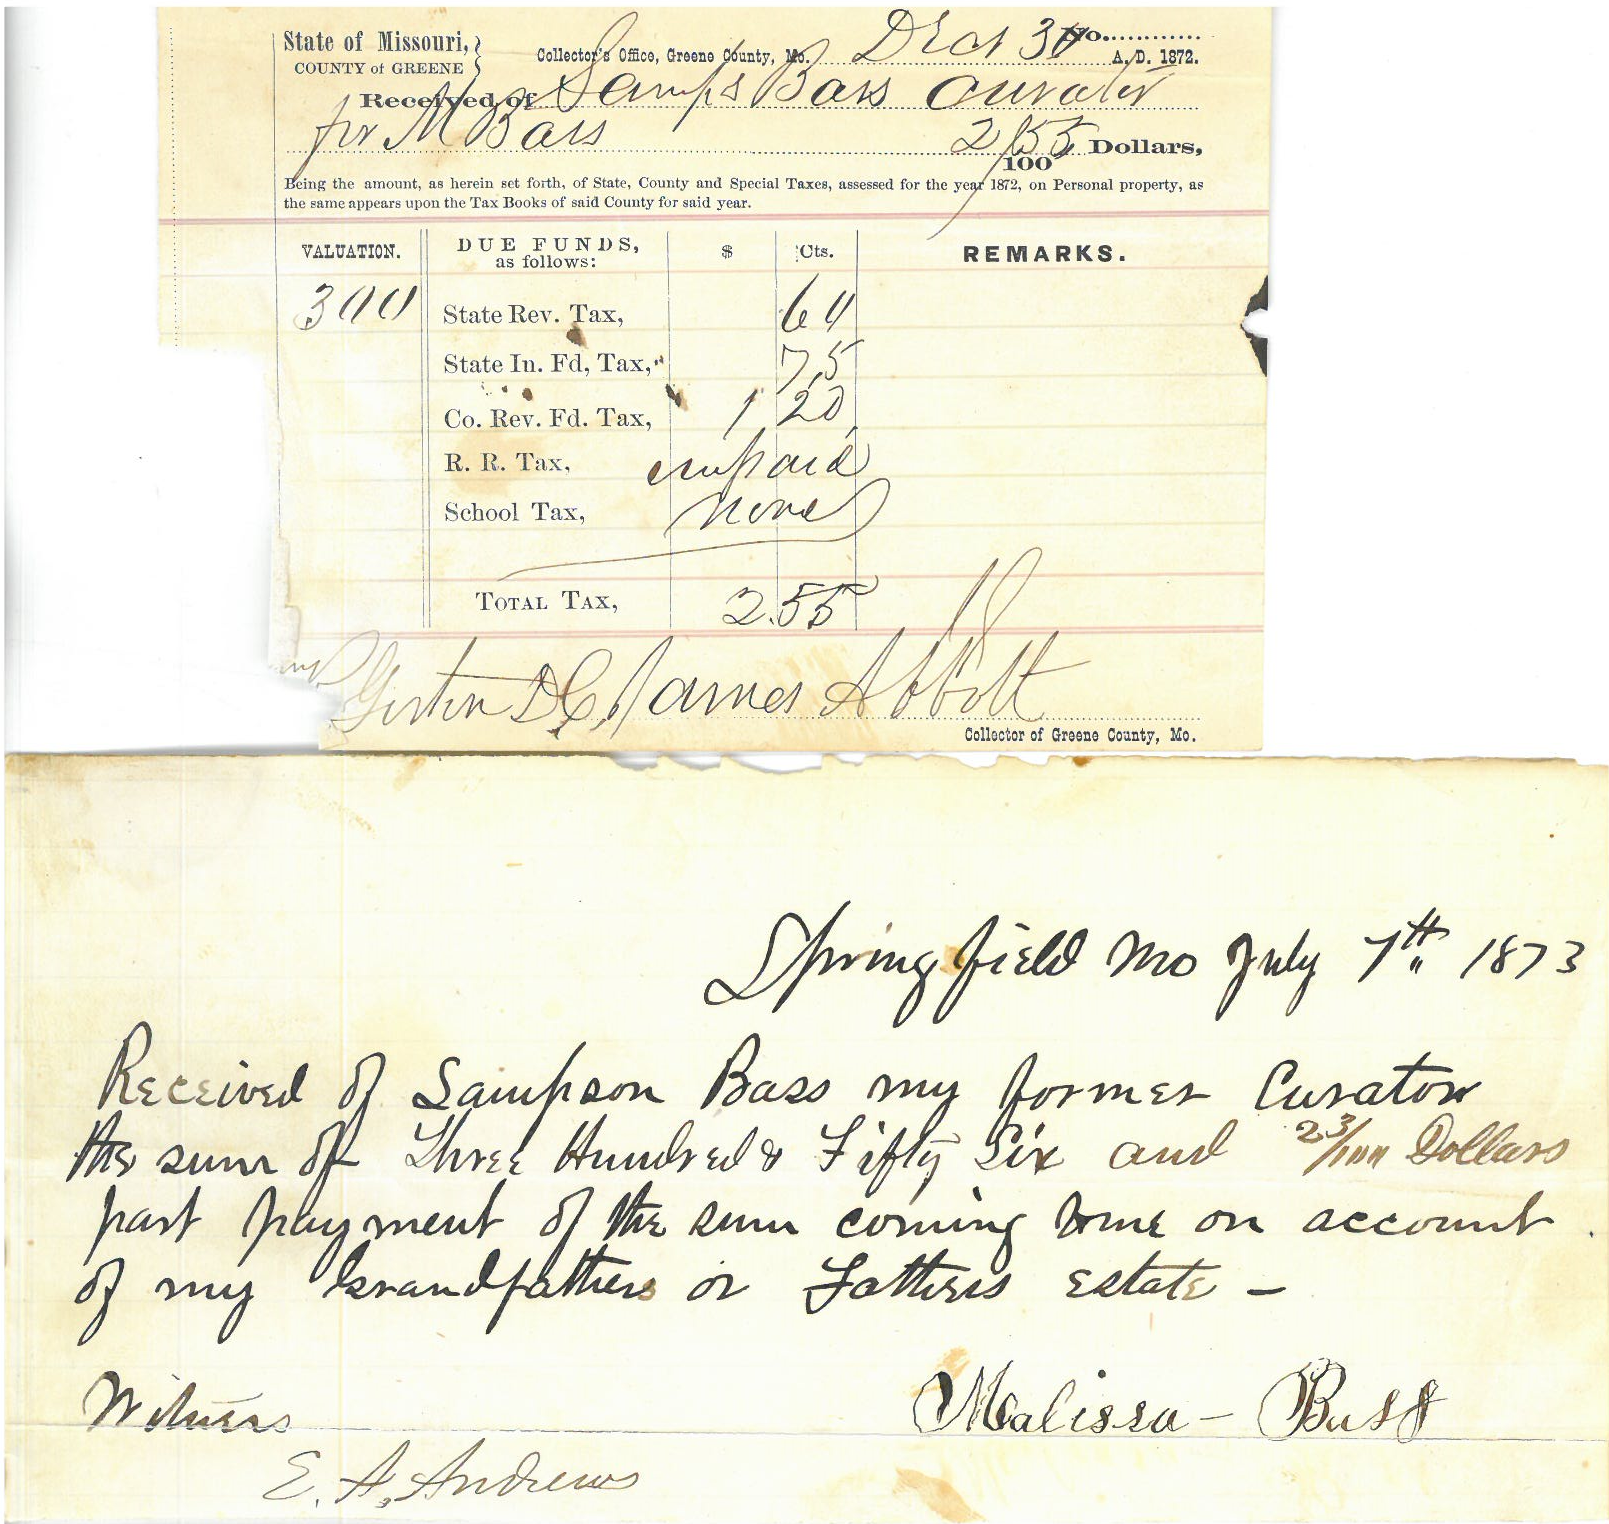 State of Missouri,
COUNTY of GREENE
No.
Collector's Office, Greene County, Mo. Dec 30 A. D. 1872.
Received of Samps Bass curator
for M Bass 2 55/100 Dollars,
Being the amount, as herein set forth, of State, County and Special Taxes, assessed for the year 1872, on Personal property, as
the same appears upon the Tax Books of said County for said year.
VALUATION. DUE FUNDS, as follows: $ Cts. REMARKS.
300 State Rev. Tax, 60
State In. Fd, Tax, 75
Co. Rev. Fd. Tax, 1 20
R. R. Tax, unpaid
School Tax, none
TOTAL TAX, 2.55
D C James Abbott
Collector of Greene County, Mo.
Springfield Mo July 7th 1873
Received of Sampson Bass my former Curator
the sum of Three Hundred & Fifty Six and 23/100 Dollars
part payment of the sum coming to me on account
of my Grandfathers or Fathers Estate -
Witness Malissa - Bass
E. A. Andrews